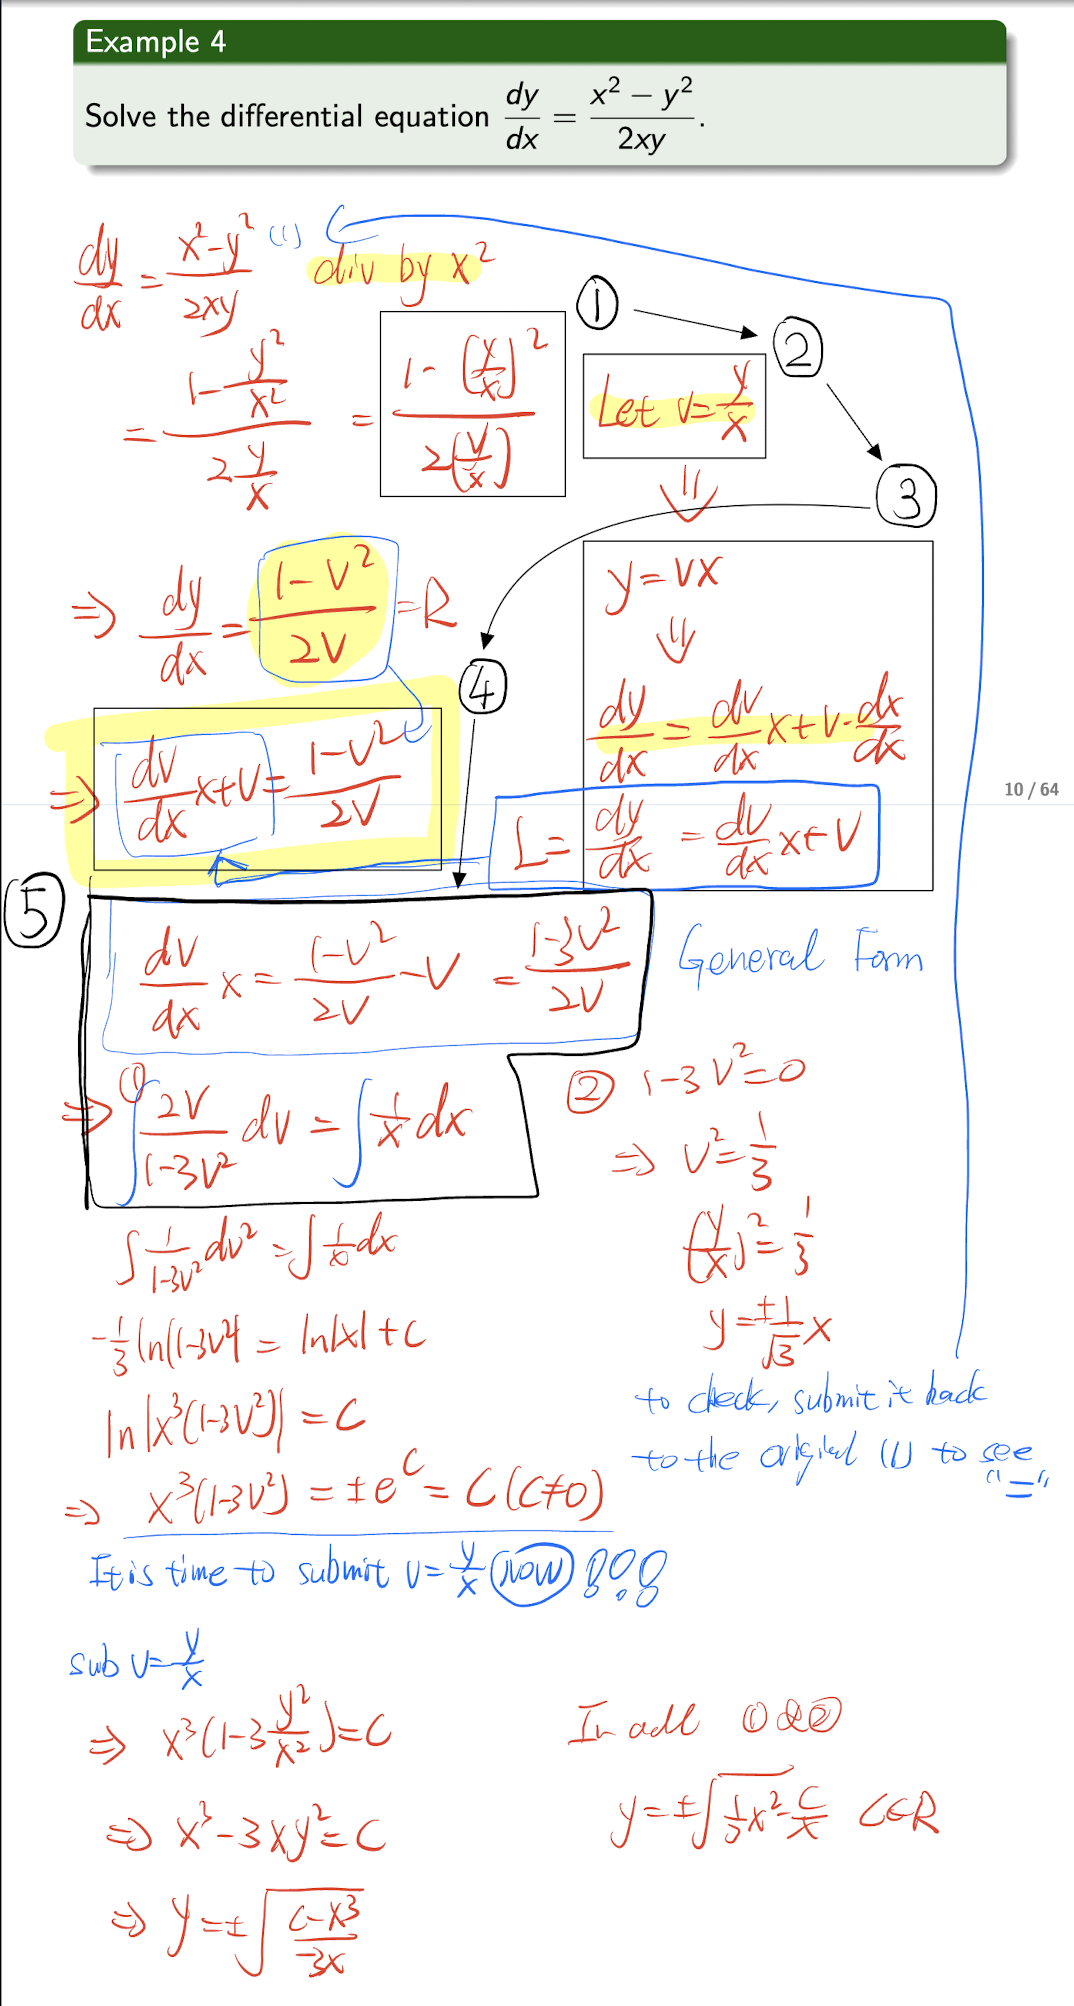 Example 4
Solve the differential equation dy/dx = (x² − y²)/(2xy).
dy/dx = (x²−y²)/(2xy) (1) div by x²
①
②
= (1 − y²/x²)/(2 y/x) = (1 − (y/x)²)/(2(y/x)) Let v = y/x
③
⇓
y = vx
⇒ dy/dx = (1−v²)/(2v) = R
⇓
④
dy/dx = dv/dx x + v · dx/dx
⇒ dv/dx x + v = (1−v²)/(2v)
10 / 64
L = dy/dx = dv/dx x + v
⑤
dv/dx x = (1−v²)/(2v) − v = (1−3v²)/(2v)
General Form
⇒ ① ∫ 2v/(1−3v²) dv = ∫ 1/x dx
∫ 1/(1−3v²) dv² = ∫ 1/x dx
−1/3 ln|1−3v²| = ln|x| + c
ln|x³(1−3v²)| = c
⇒ x³(1−3v²) = ±e^c = C (C≠0)
② 1−3v² = 0
⇒ v² = 1/3
(y/x)² = 1/3
y = ±1/√3 x
to check, submit it back
to the original (1) to see
"="
It is time to submit v = y/x NOW !!!
sub v = y/x
⇒ x³(1−3 y²/x²) = C
⇒ x³ − 3xy² = C
⇒ y = ±√((C−x³)/(−3x))
In all ① & ②
y = ±√(1/3 x² − C/x) C∈R